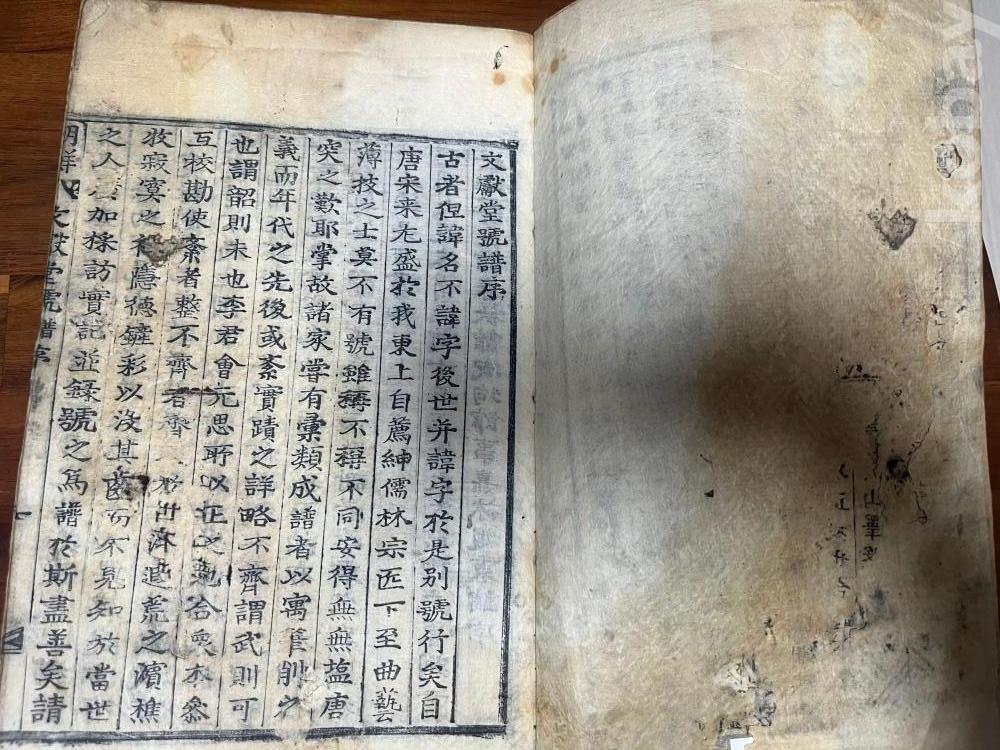 文獻堂號譜序
古者但諱名不諱字後世并諱字於是別號行矣自
唐宋来尤盛於我東上自薦紳儒林宗匠下至曲藝
薄技之士莫不有號雖稱不稱不同安得無無蕰唐
突之歎耶掌故諸家嘗有彙類成譜者以寓之
義而年代之先後或紊實蹟之詳略不齊謂武則可
也謂韶則未也李君會元思所以正之合衆本參
互校勘使紊者整不齊者齊荒之濱樵
牧寂寞之隱德鏟彩以没其齒而不見知於當世
之人加採訪實記並錄號之爲譜於斯盡善矣請
文獻堂號譜序